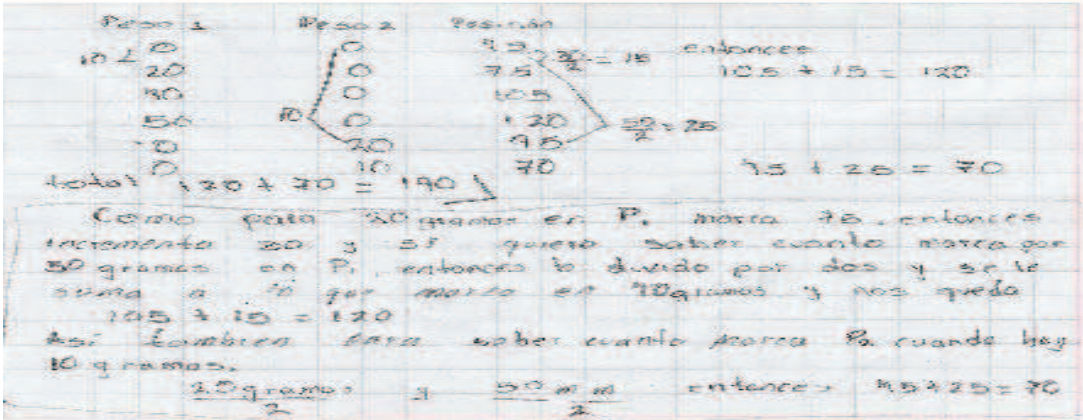 Peso 1 Peso 2 Posición
10 < 0 0 45 30/2 = 15 entonces
20 0 75 105 + 15 = 120
40 0 105
50 10 0 120 50/2 = 25
0 20 95
0 10 70 45 + 25 = 70
total 120 + 70 = 190
Como para 20 gramos en P1 marca 75, entonces
incrementa 30 y si quiero saber cuanto marca por
50 gramos en P1 entonces lo divido por dos y se le
suma a lo que marco en 40 gramos y nos queda
105 + 15 = 120
Así tambien para saber cuanto marca P2 cuando hay
10 gramos.
20 gramos/2 y 50 mm/2 entonces 45+25=70